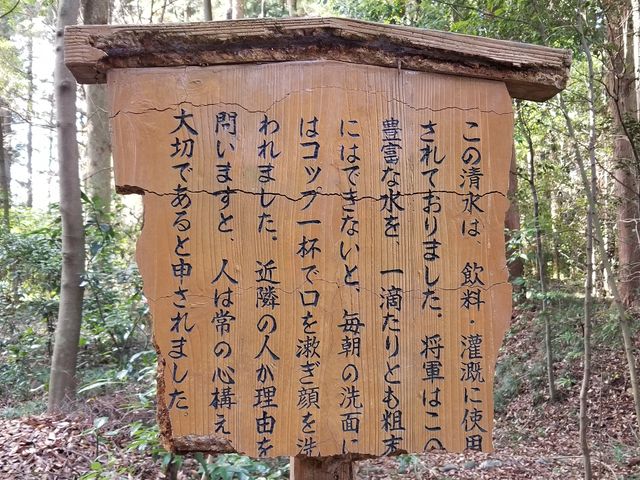 この清水は、飲料・灌漑に使用
されておりました。将軍はこの
豊富な水を、一滴たりとも粗末
にはできないと、毎朝の洗面に
はコップ一杯で口を漱ぎ顔を洗
われました。近隣の人が理由を
問いますと、人は常の心構え
大切であると申されました。